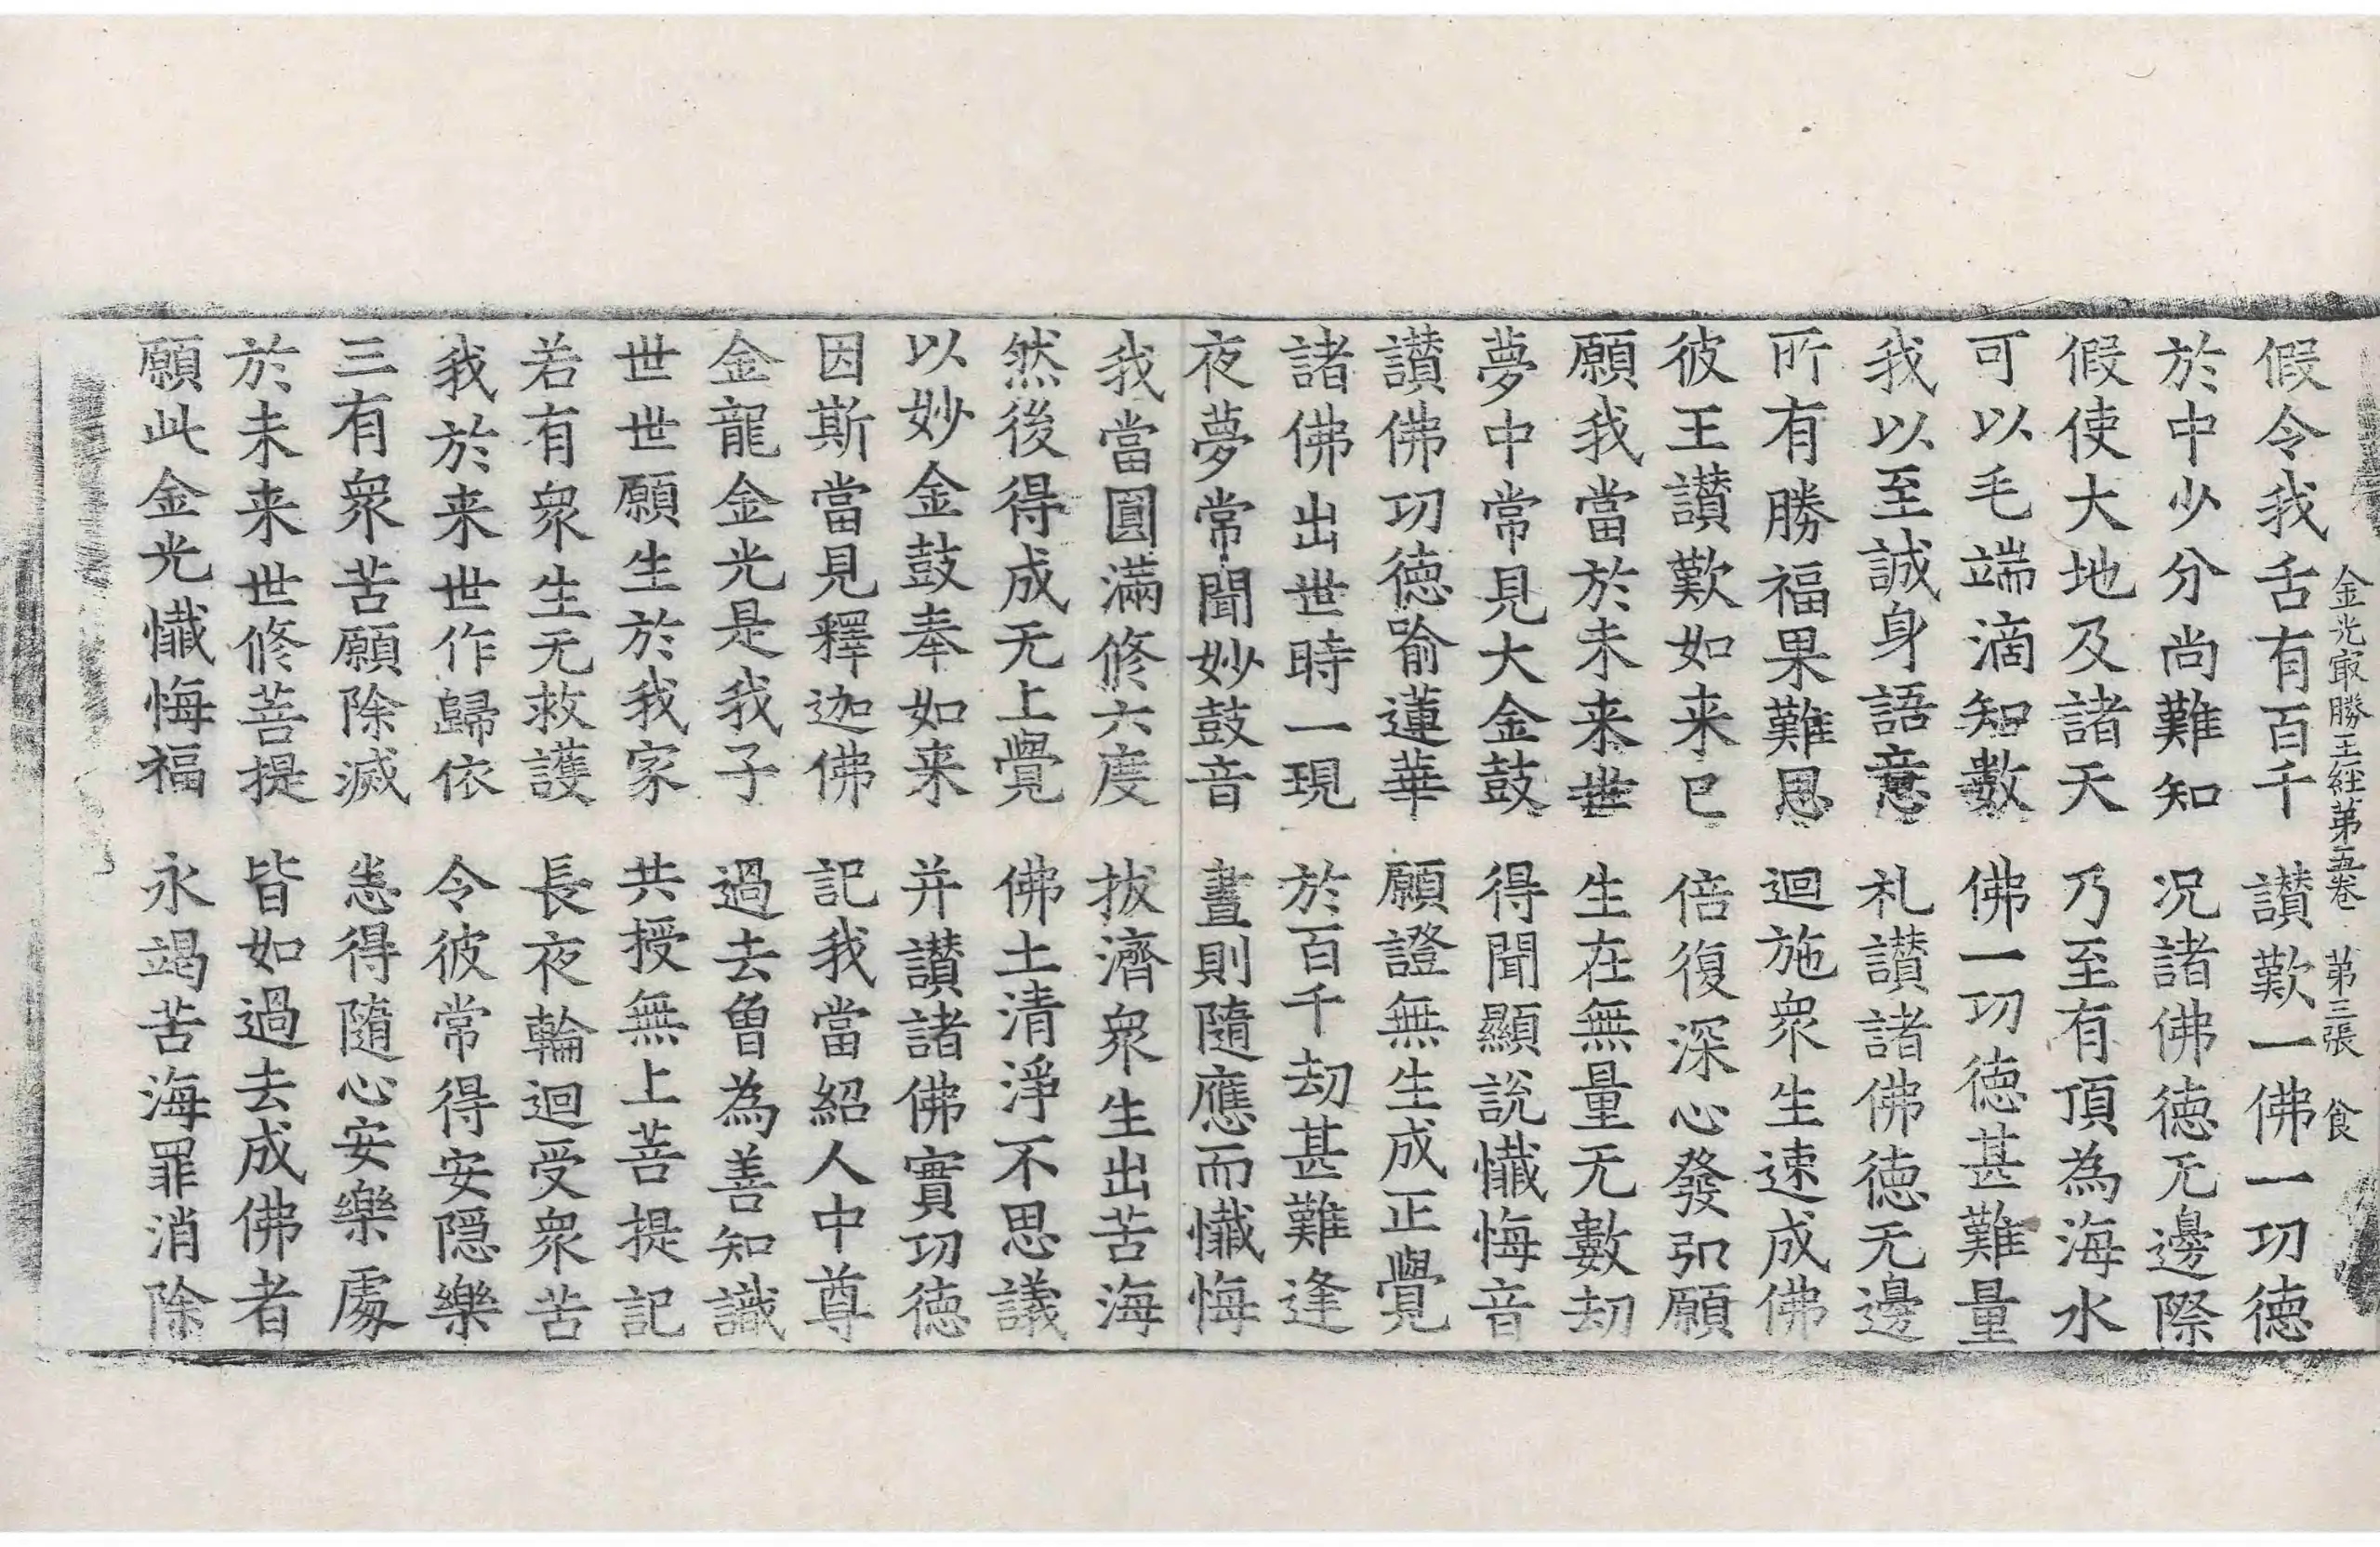 金光㝡勝王経苐五卷　苐三張　食
假令我舌有百千　讃歎一佛一功徳
於中少分尚難知　况諸佛徳无邊際
假使大地及諸天　乃至有頂為海水
可以毛端滴知數　佛一功徳甚難量
我以至誠身語意　礼讃諸佛徳无邊
所有勝福果難思　迴施衆生速成佛
彼王讃歎如来已　倍復深心發弘願
願我當於未来世　生在無量无數劫
夢中常見大金鼓　得聞顯說懴悔音
讃佛功徳喻蓮華　願證無生成正覺
諸佛出世時一現　於百千劫甚難逢
夜夢常聞妙鼓音　晝則隨應而懴悔
我當圓滿修六度　拔濟衆生出苦海
然後得成无上覺　佛土清淨不思議
以妙金鼓奉如来　并讃諸佛實功徳
因斯當見釋迦佛　記我當紹人中尊
金龍金光是我子　過去曾為善知識
世世願生於我家　共授無上菩提記
若有衆生无救護　長夜輪迴受衆苦
我於来世作歸依　令彼常得安隠樂
三有衆苦願除滅　悉得隨心安樂處
於未来世修菩提　皆如過去成佛者
願此金光懴悔福　永竭苦海罪消除